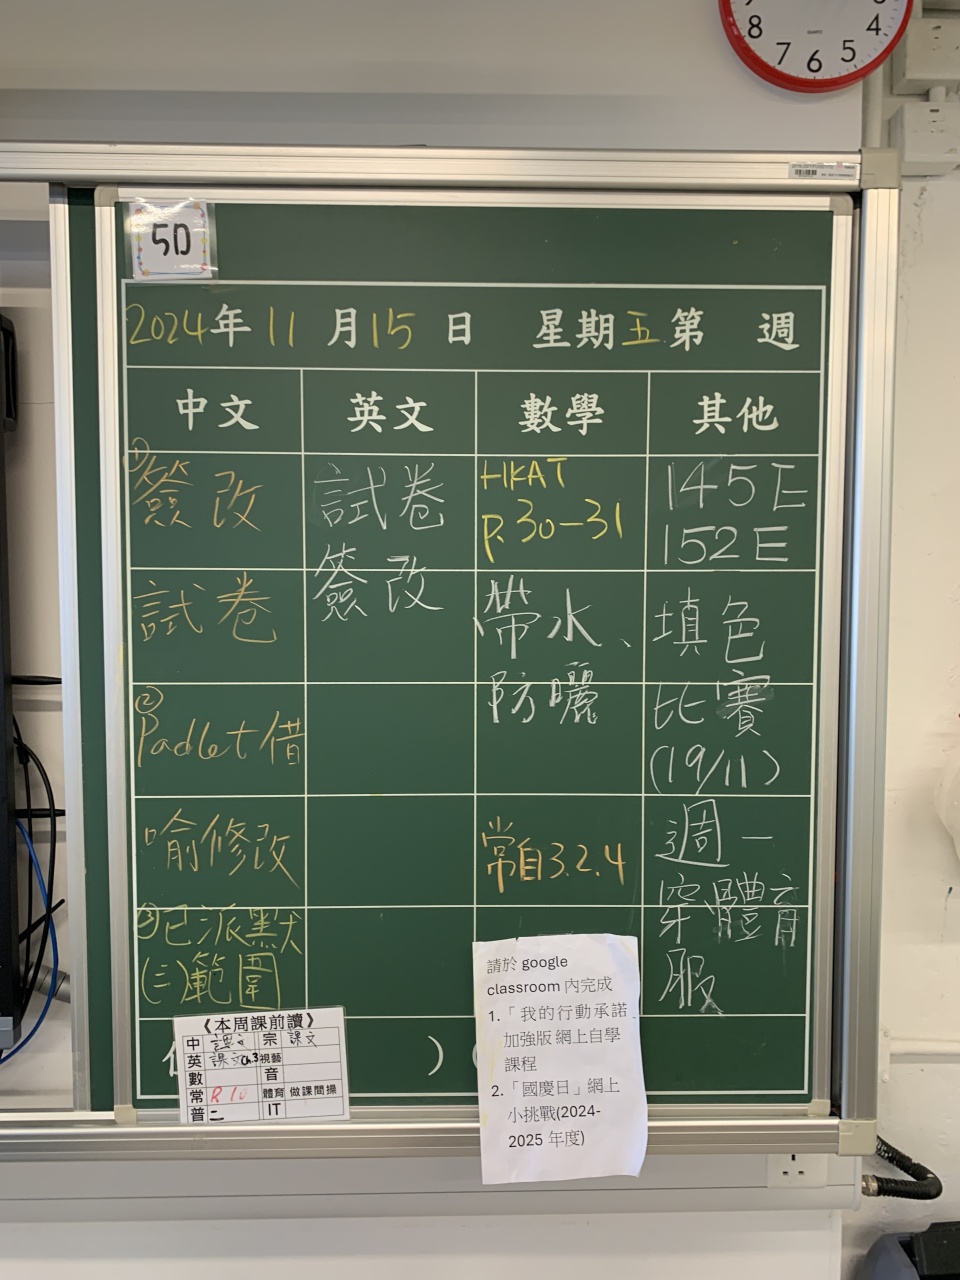 8
4
7
6
5
5D
2024年11月15日 星期五第 週
中文 英文 數學 其他
①簽改
試卷
②Padlet借
喻修改
③已派默
(二)範圍
試卷
簽改
HKAT
p.30-31
帶水、
防曬
常自3.2.4
145E
152E
填色
比賽
(19/11)
週一
穿體育
服
)
《本周課前讀》
中 課文 宗 課文
英 課文ch.3 視藝
數 音
常 R10 體育 做課間操
普 二 IT
請於 google
classroom 內完成
1.「我的行動承諾
加強版 網上自學
課程
2.「國慶日」網上
小挑戰(2024-
2025 年度)